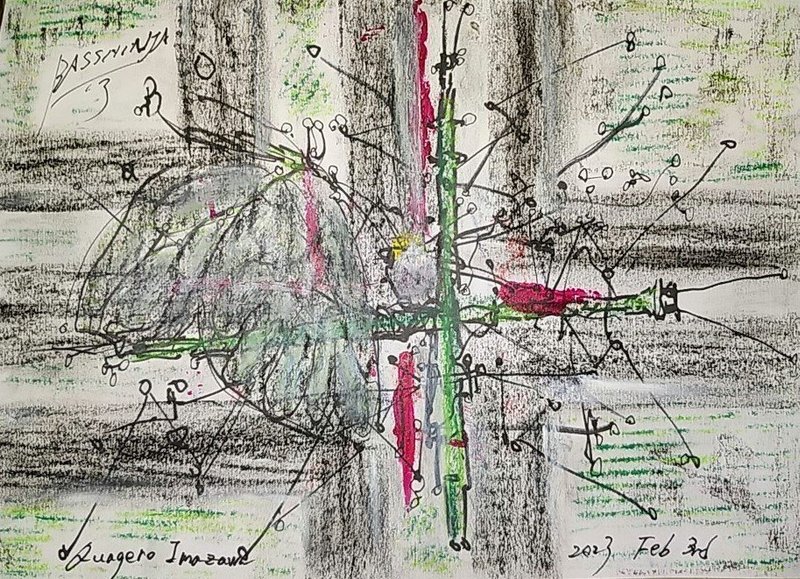 BASSNINJA
'3
Quagero Imazawa
2023 Feb 3rd